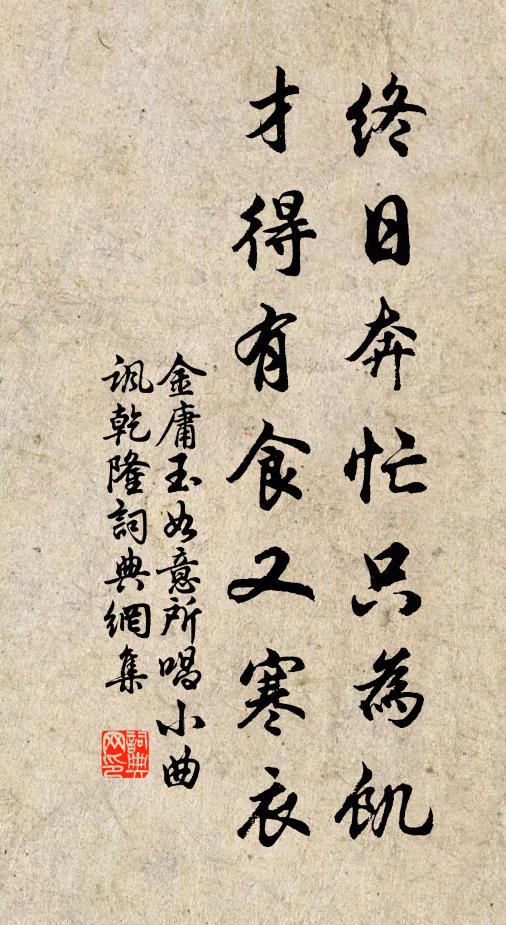 終日奔忙只為飢
才得有食又寒衣
金庸玉如意所唱小曲
諷乾隆詞典網集
詞典
网印